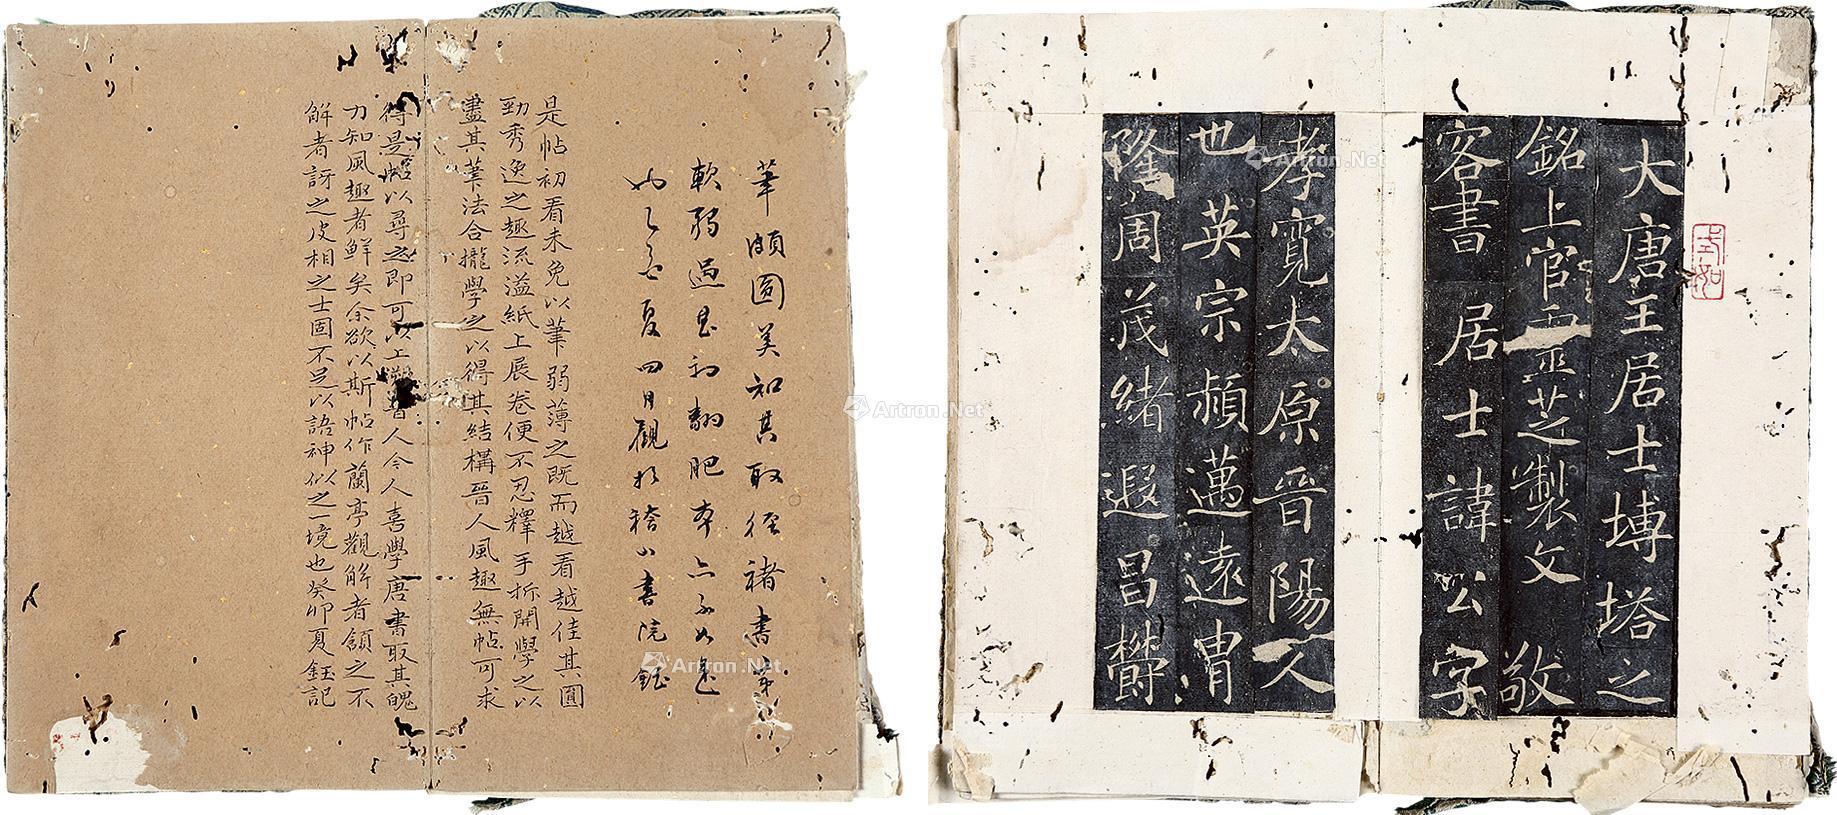 筆頗圓美和其取徑褚書第
軟弱過甚初翻肥本亦不如是
夏四月觀於 書院 鈺
是帖初看未免以筆弱薄之既而越看越佳其圓
勁秀逸之趣流溢紙上展卷便不忍釋手拆開學之以
盡其筆法合攏學之以得其結構晉人風趣無帖可求
得是帖以尋之即可以上 晉人今人喜學唐書取其魄
力知風趣者鮮矣余欲以斯帖作蘭亭觀解者頷之不
解者訝之皮相之士固不足以語神似之一境也癸卯夏鈺記
大唐王居士塼塔之
銘上官靈芝製文 敬
客書 居士諱公字
孝寬太原晉陽人
也英宗頻邁遠冑
隆周茂緒遐昌欝
Artron.Net
Artron.Net
Artron.Net
Artron.Net